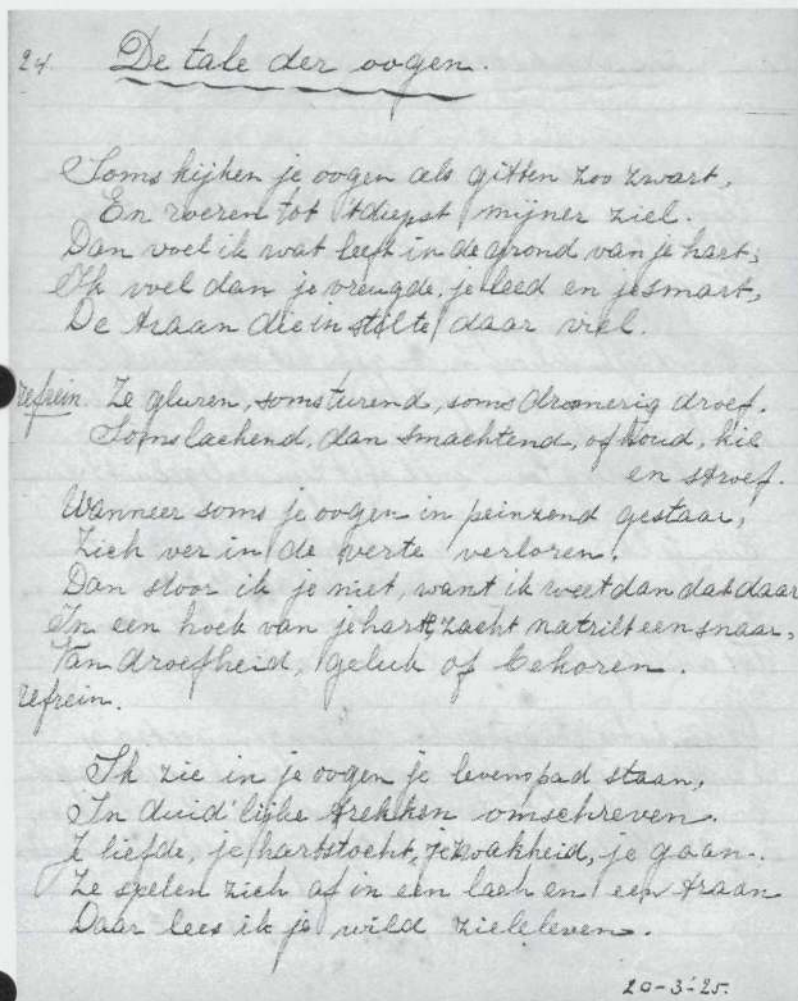 24. De tale der oogen.
Soms kijken je oogen als gitten zoo zwart,
En roeren tot 't diepst mijner ziel.
Dan voel ik wat leeft in de grond van je hart,
Ik voel dan je vreugde, je leed en je smart,
De traan die in stilte daar viel.
refrein. Ze gluren, soms turend, soms dromerig droef.
Soms lachend, dan smachtend, of koud, kil
en stroef.
Wanneer soms je oogen in peinzend gestaar,
Zich ver in de verte verloren.
Dan stoor ik je niet, want ik weet dan dat daar
In een hoek van je hart, zacht natrilt een snaar,
Van droefheid, geluk of bekoren.
refrein.
Ik zie in je oogen je levenspad staan,
In duid'lijke trekken omschreven.
Je liefde, je hartstocht, je zwakheid, je gaan.
Ze spelen zich af in een lach en een traan
Daar lees ik je wild zieleleven.
20-3-'25.